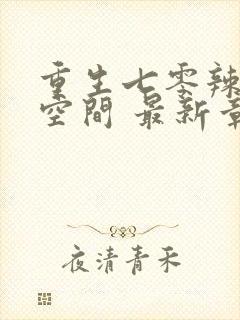 重生七零辣
空間 最新章
夜清青禾